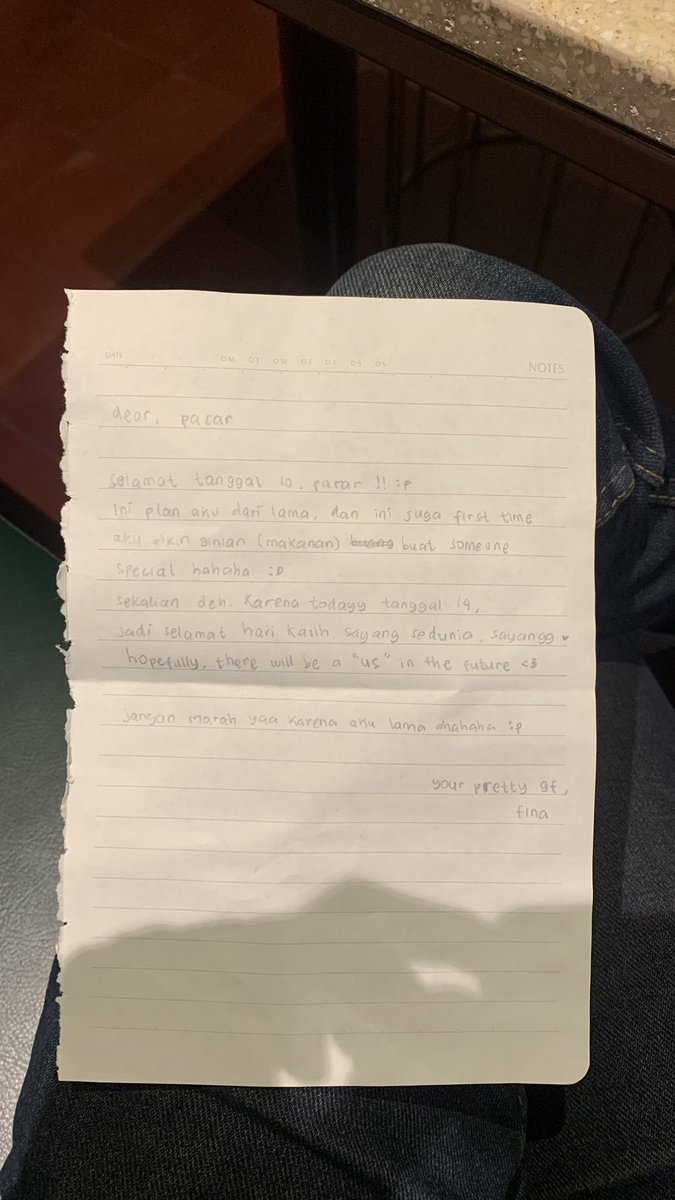 DATE / / OM OT OW OT OF OS OS
NOTES
dear, pacar
selamat tanggal 10, pacar !! :p
ini plan aku dari lama, dan ini juga first time
aku bikin ginian (makanan) buang buat someone
special hahaha :D
sekalian deh. Karena todayy tanggal 14,
jadi selamat hari kasih sayang sedunia, sayangg ♥
hopefully, there will be a "us" in the future <3
jangan marah yaa karena aku lama ahahaha :p
your pretty gf,
fina